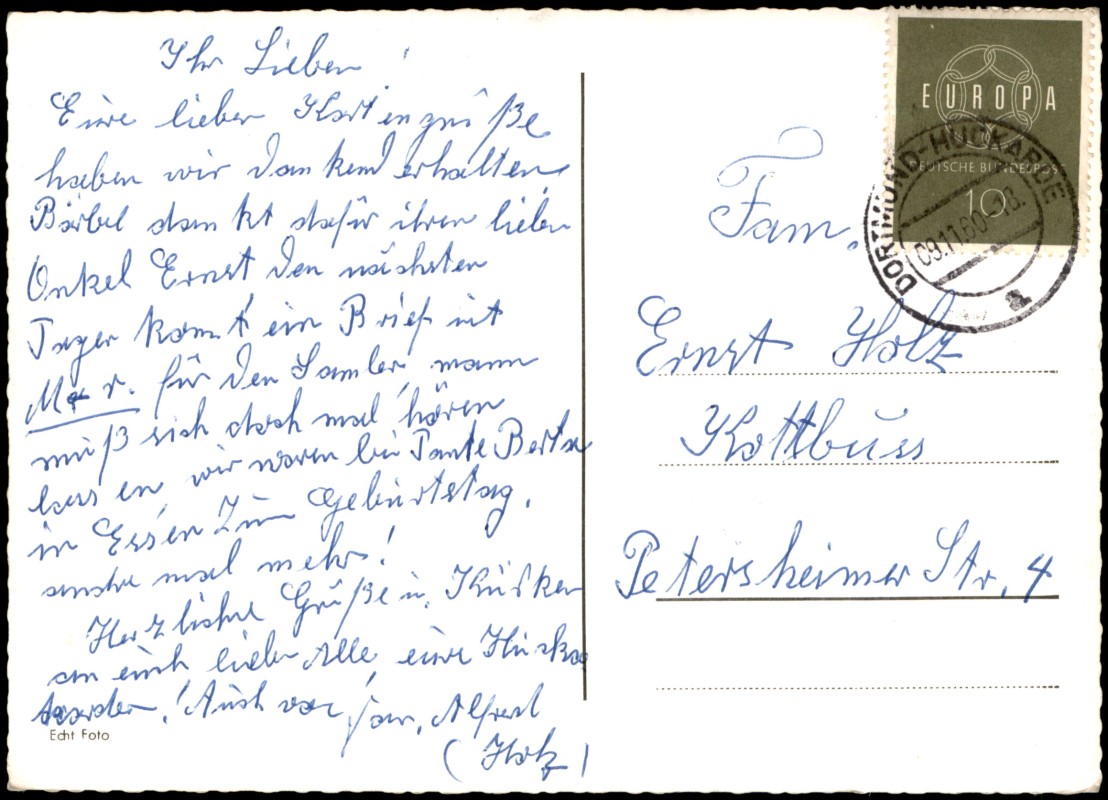 Ihr Lieben!
Eure lieben Kartengrüße
haben wir dankend erhalten
Bärbel dankt dafür ihren lieben
Onkel Ernst den nächsten
Tagen komt ein Brief mit
für den Samler, mann
muß sich doch mal hören
lassen, wir waren bei Tante Berta
in Essen zum Geburtstag.
mal mehr!
Herzliche Grüße u.
an euch lieben Alle, eure
! Auch von Fam. Alfred
(Holz)
Echt Foto
EUROPA
DEUTSCHE BUNDESPOST
10
DORTMUND-HUCKARDE
09.11.60-18.
a
Fam.
Ernst Holz
Kottbuss
Petersheimer Str. 4